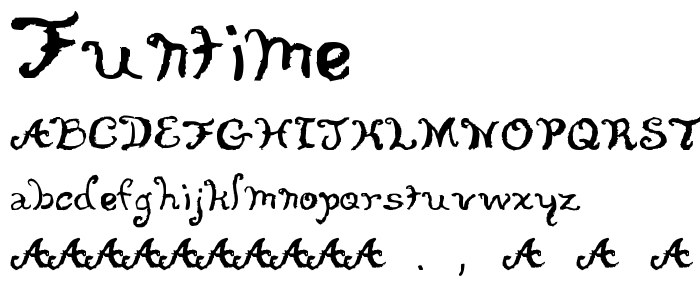 Funtime
ABCDEFGHIJKLMNOPQRST
abcdefghijklmnopqrstuvwxyz
AAAAAAAAAA . , A A A